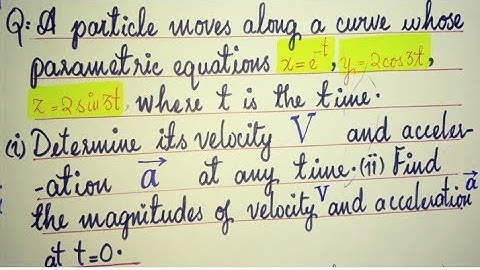 Q: A particle moves along a curve whose
parametric equations x=e^-t, y=2cos3t,
z=2sin3t, where t is the time.
(i) Determine its velocity V and acceler-
-ation a⃗ at any time. (ii) Find
the magnitudes of velocity V and acceleration a⃗
at t=0.